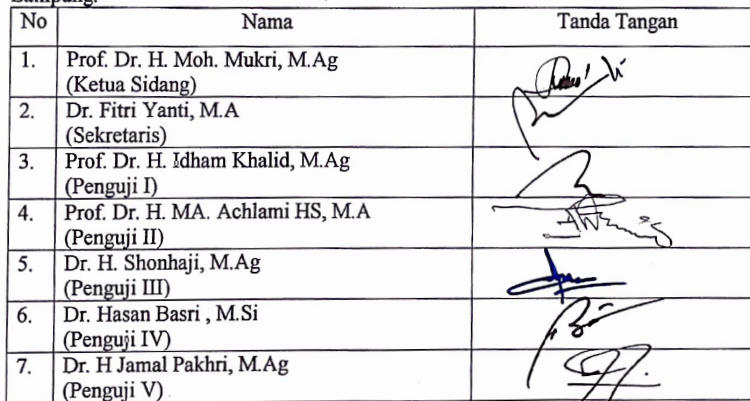 No Nama Tanda Tangan
1. Prof. Dr. H. Moh. Mukri, M.Ag
(Ketua Sidang)
2. Dr. Fitri Yanti, M.A
(Sekretaris)
3. Prof. Dr. H. Idham Khalid, M.Ag
(Penguji I)
4. Prof. Dr. H. MA. Achlami HS, M.A
(Penguji II)
5. Dr. H. Shonhaji, M.Ag
(Penguji III)
6. Dr. Hasan Basri , M.Si
(Penguji IV)
7. Dr. H Jamal Pakhri, M.Ag
(Penguji V)